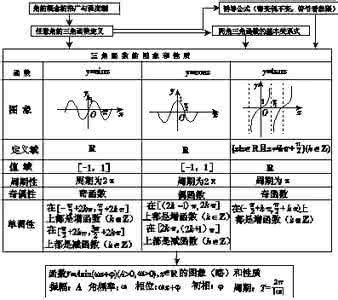 角的概念的推广与弧度制
诱导公式(奇变偶不变，符号看象限)
任意角的三角函数定义
同角三角函数的基本关系式
三角函数的图象和性质
函数 y=sinx y=cosx y=tanx
图象
定义域 R R
值域 [-1，1] [-1，1] R
周期性 周期为2π 周期为2π 周期为π
奇偶性 奇函数 偶函数 奇函数
单调性
在[-π/2+2kπ,π/2+2kπ]
上都是增函数(k∈Z)
上都是减函数(k∈Z)
在[(2k-1)π,2kπ]
上都是增函数(k∈Z)
在[2kπ,(2k+1)π]
上都是减函数(k∈Z)
在(-π/2+kπ,π/2+kπ)上
都是增函数(k∈Z)
函数y=Asin(ωx+φ)(A>0,ω>0),x∈R的图象(略)和性质
振幅：A 角频率：ω 相位：ωx+φ 初相：φ 周期：T=2π/|ω|